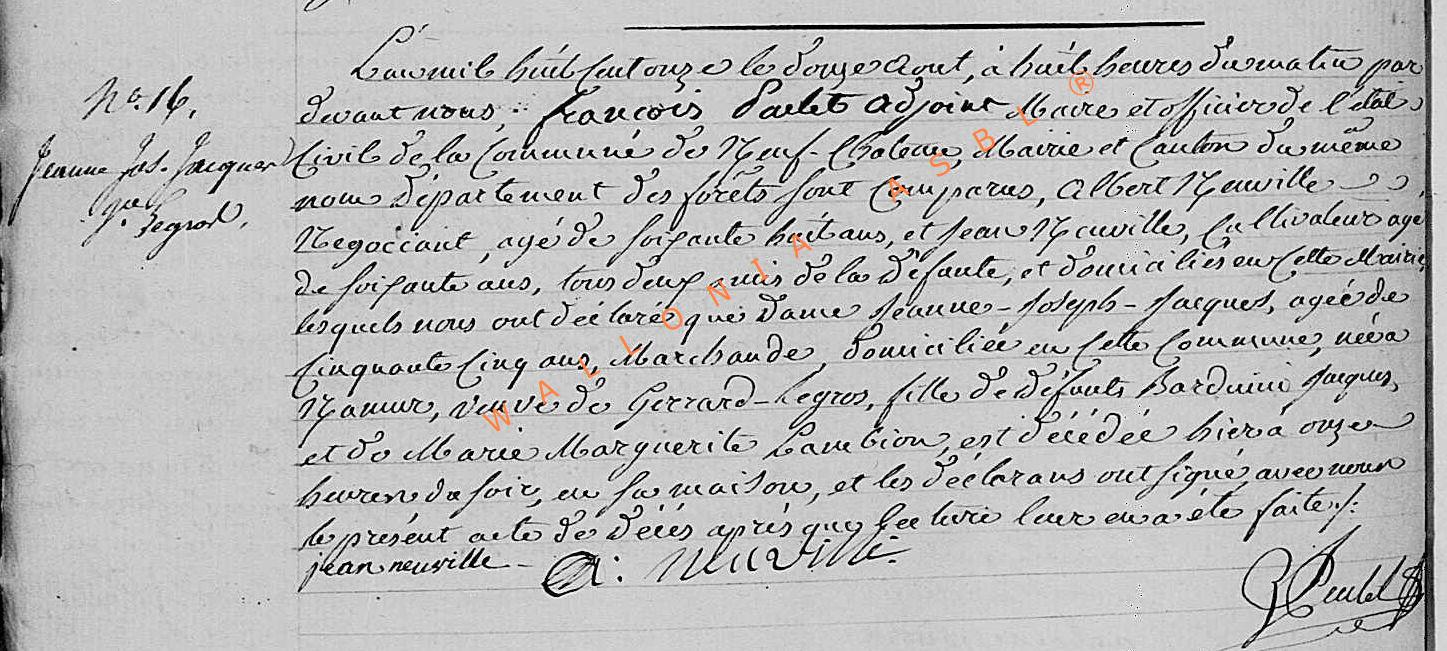 L'an mil huit cent onze le douze aout, à huit heures du matin par
No. 16.
devant nous, françois Paulet adjoint Maire et officier de l'état
Civil de la Commune de Neuf-Chateau, Mairie et Canton du même
Jeanne Jos. Jacques
nom département des forêts sont Comparus, Albert Neuville
Ve. Legros.
Negociant, agé de soixante huit ans, et Jean Neuville, Cultivateur agé
de soixante ans, tous deux amis de la Défunte, et domiciliés en Cette Mairie,
lesquels nous ont déclaré que Dame Jeanne-Joseph-Jacques, agée de
Cinquante Cinq ans, Marchande, domiciliée en Cette Commune, née à
Namur, veuve de Gerrard-Legros, fille de Défunts Barduin Jacques,
et de Marie Marguerite Lambion, est décédée hier à onze
heures du soir, en sa maison, et les déclarans ont signé avec nous
le présent acte de décès après que lecture leur en a été faite ./.
jean neuville - A: Neuville.
WALLONIA ASBL ®